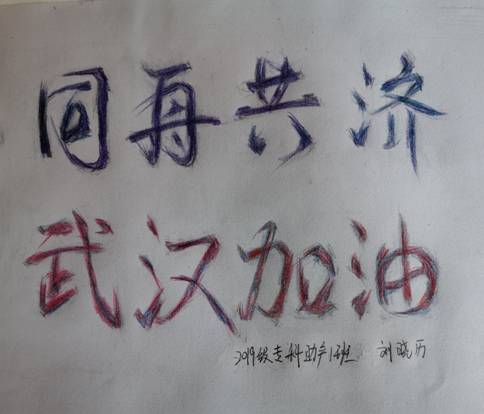 同再共济
武汉加油
2019级专科助产1班 刘晓历